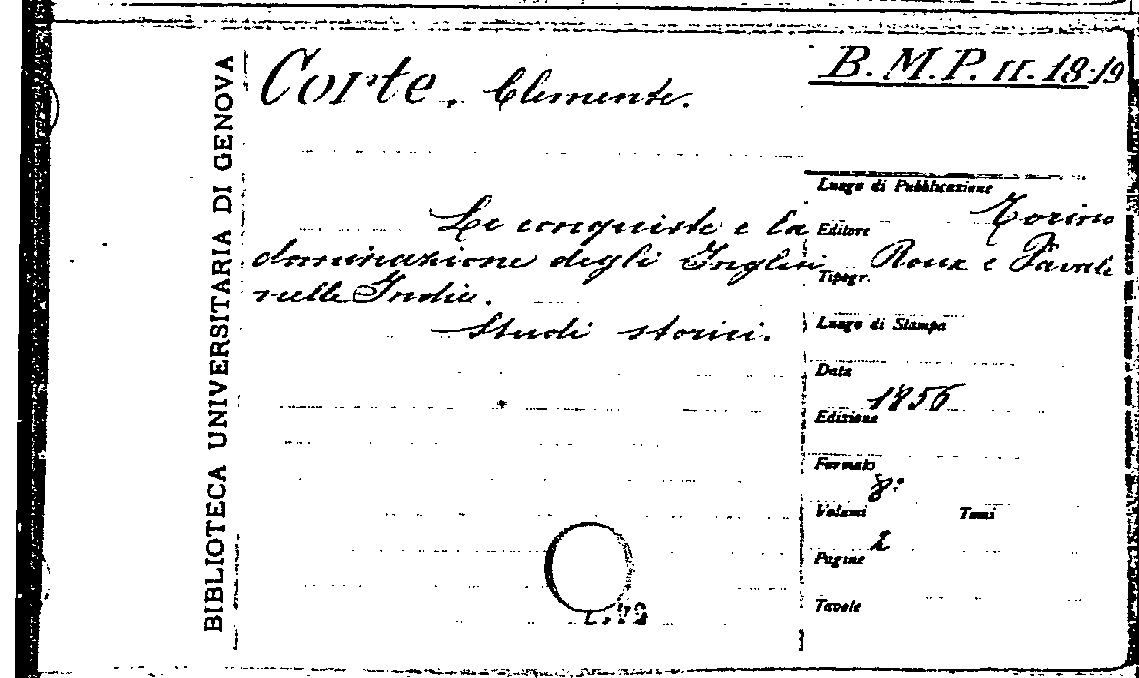 BIBLIOTECA UNIVERSITARIA DI GENOVA
Corte. Clemente.
B. M. P. II. 18-19
Le conquiste e la
dominazione degli Inglesi
nelle Indie.
Studi storici.
Luogo di Pubblicazione
Torino
Editore
Roux e Favale
Tipogr.
Luogo di Stampa
Data
1856
Edizione
Formato
8:
Volumi Tomi
2
Pagine
Tavole